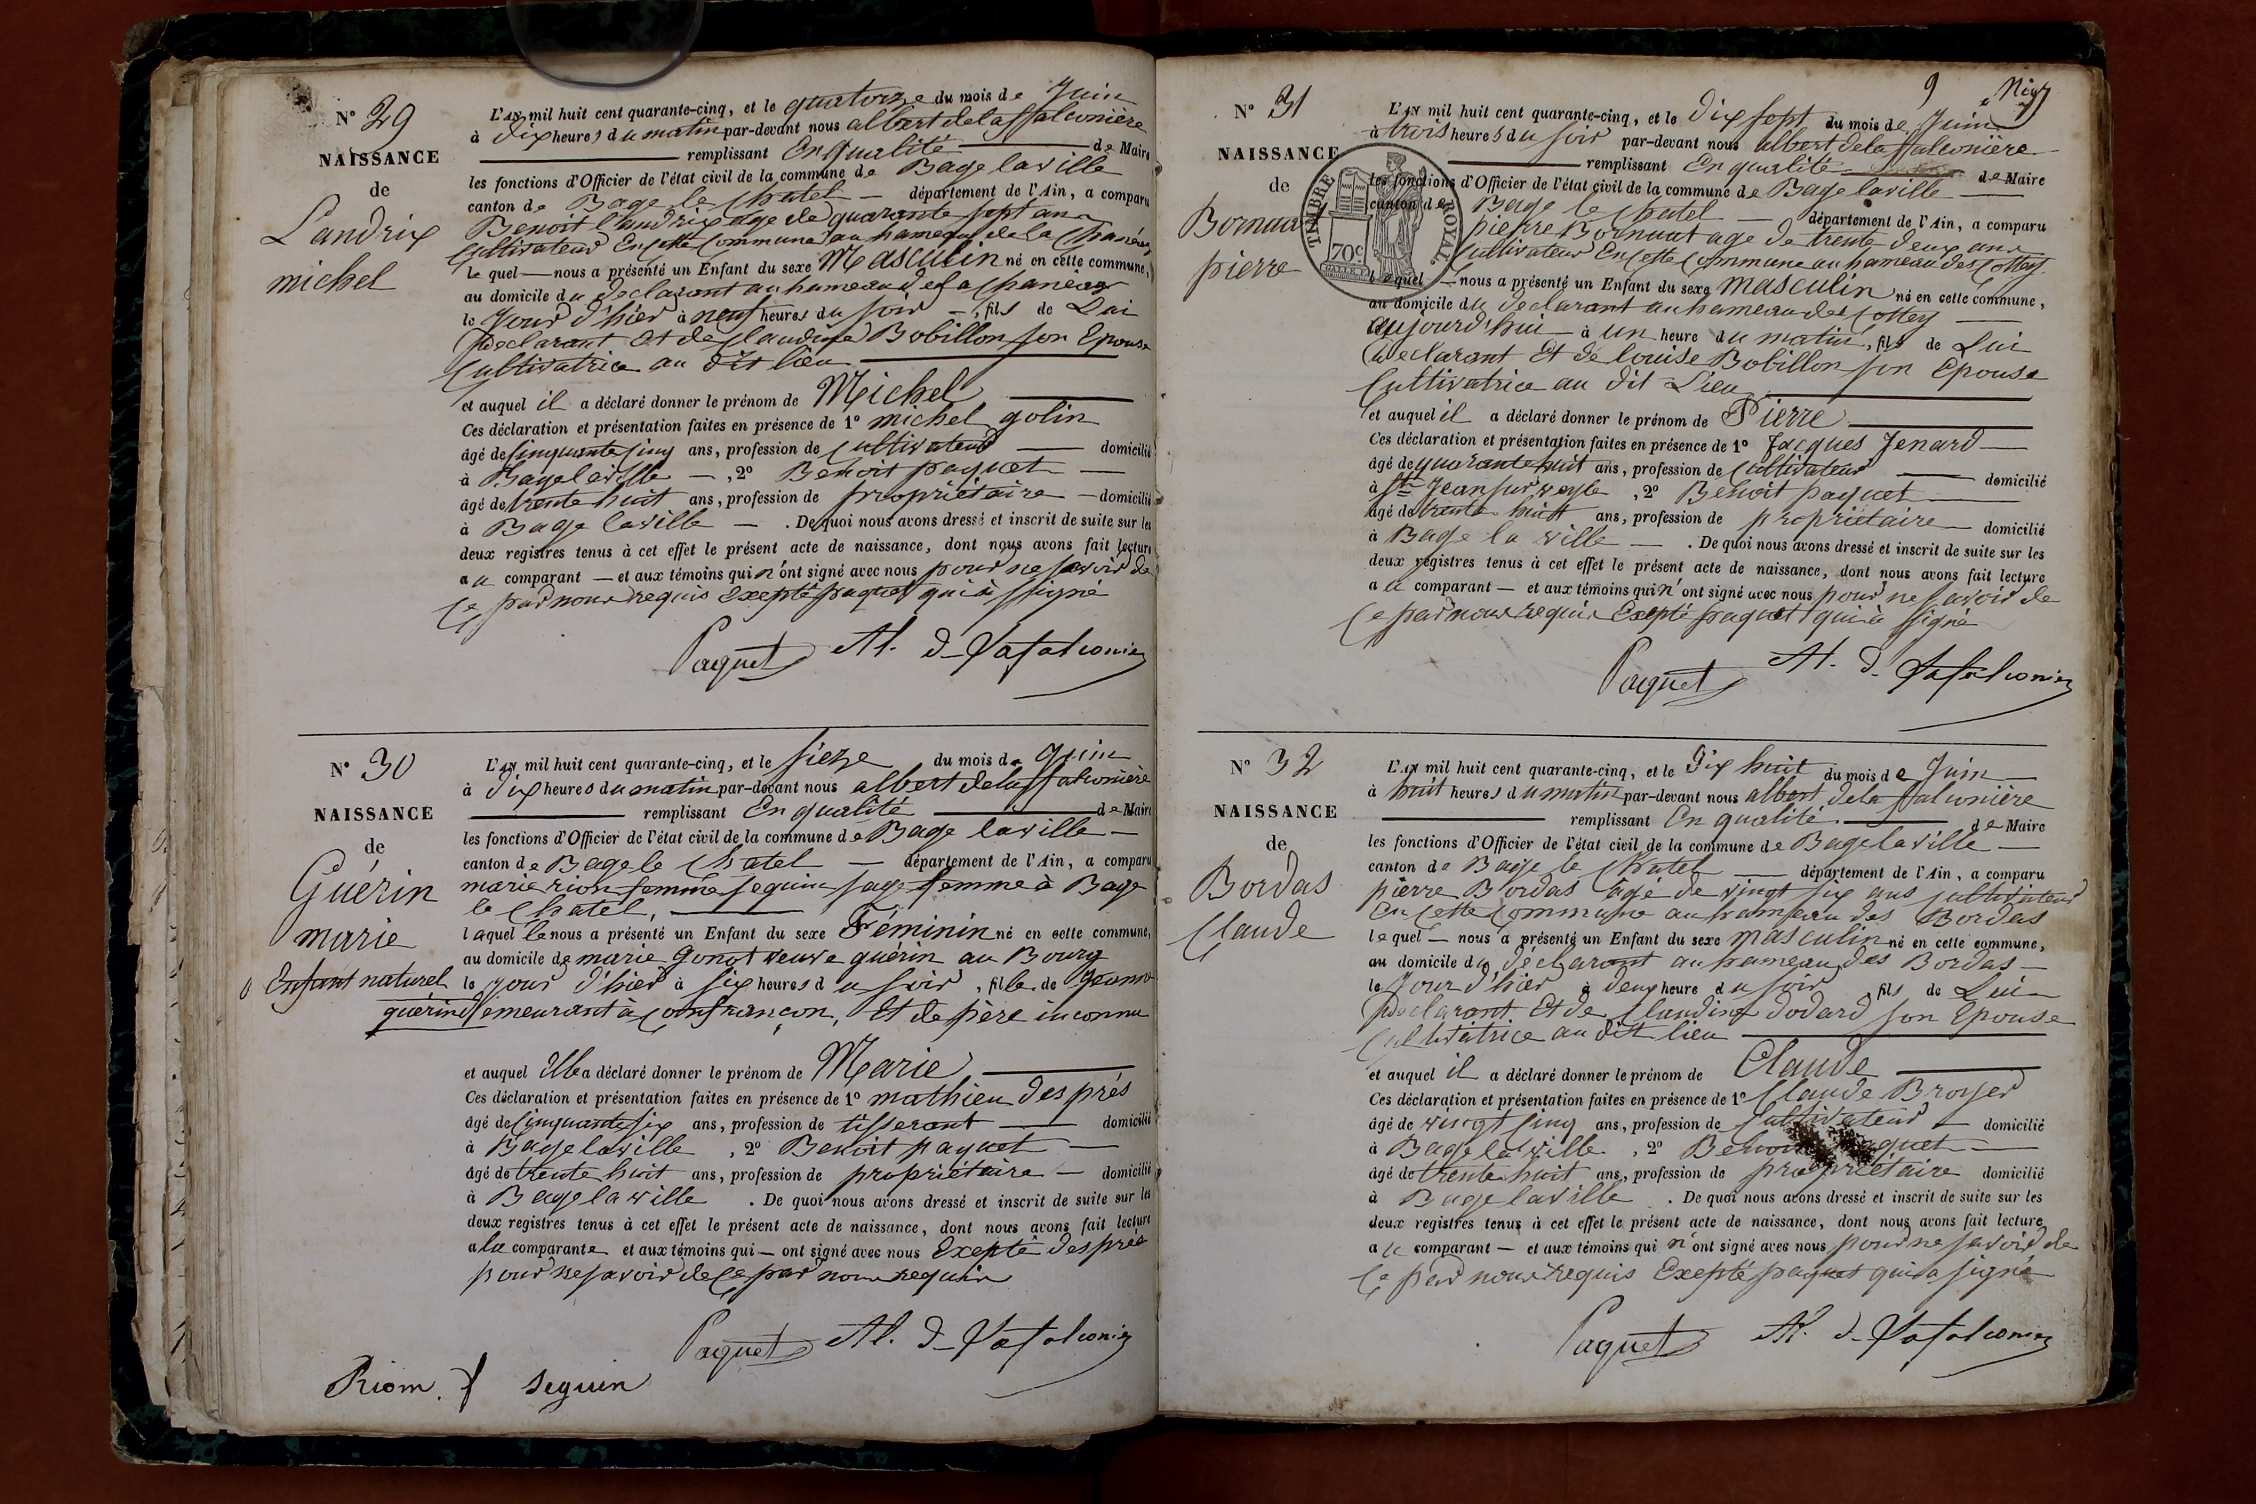 N° 29
NAISSANCE
de
Landrix
michel
L'AN mil huit cent quarante-cinq, et le quatorze du mois de Juin
à dix heures du matin par-devant nous albert de la ffalconière
remplissant En qualité de Maire
les fonctions d'Officier de l'état civil de la commune de Bage la ville
canton de Bage le Chatel département de l'Ain, a comparu
Benoit Landrix age de quarante sept ans
Cultivateur En cette Commune au hameau de la Chanéaz
le quel nous a présenté un Enfant du sexe Masculin né en cette commune,
au domicile du declarant au hameau de la Chanéaz
le Jour d'hier à neuf heures du soir, fils de Lui
declarant Et de Claudine Bobillon son Epouse
Cultivatrice au dit lieu
et auquel il a déclaré donner le prénom de Michel
Ces déclaration et présentation faites en présence de 1° michel golin
âgé de Cinquante Cinq ans, profession de Cultivateur domicilié
à Bage la ville, 2° Benoit paquet
âgé de trente huit ans, profession de propriétaire domicilié
à Bage la ville. De quoi nous avons dressé et inscrit de suite sur les
deux registres tenus à cet effet le présent acte de naissance, dont nous avons fait lecture
au comparant et aux témoins qui n'ont signé avec nous pour ne savoir de
Ce par nous requis Exepté paquet qui à signé
Paquet Al. d. Lafalconière
N° 30
NAISSANCE
de
Guérin
marie
Enfant naturel
L'AN mil huit cent quarante-cinq, et le sieze du mois de Juin
à dix heures du matin par-devant nous albert de la ffalconière
remplissant En qualité de Maire
les fonctions d'Officier de l'état civil de la commune de Bage la ville
canton de Bage le Chatel département de l'Ain, a comparu
marie rion femme seguin sage femme à Bage
le Chatel,
laquelle nous a présenté un Enfant du sexe Féminin né en cette commune,
au domicile de marie Gonot veuve guérin au Bourg
le jour d'hier à six heures du soir, fille de Jeanne
guérin demeurant à Confrançon, Et de père inconnu
et auquel Elle a déclaré donner le prénom de Marie
Ces déclaration et présentation faites en présence de 1° mathieu des prés
âgé de Cinquante six ans, profession de tisserant domicilié
à Bage la ville, 2° Benoit paquet
âgé de trente huit ans, profession de propriétaire domicilié
à Bage la ville. De quoi nous avons dressé et inscrit de suite sur les
deux registres tenus à cet effet le présent acte de naissance, dont nous avons fait lecture
a la comparante et aux témoins qui ont signé avec nous Exepté des prés
pour ne savoir de Ce par nous requis
Paquet Al. d. Lafalconière
Riom f seguin
9
N° 31
NAISSANCE
de
Bornuat
pierre
TIMBRE ROYAL
70c
L'AN mil huit cent quarante-cinq, et le Dix sept du mois de Juin
à trois heures du soir par-devant nous albert de la ffalconière
remplissant En qualité de Maire
les fonctions d'Officier de l'état civil de la commune de Bage la ville
canton de Bage le Chatel département de l'Ain, a comparu
pierre Bornuat age de trente deux ans
Cultivateur En cette Commune au hameau des Cottey
lequel nous a présenté un Enfant du sexe masculin né en cette commune,
au domicile du declarant au hameau des Cottey
aujourd'hui à un heure du matin, fils de Lui
declarant Et de louise Bobillon son Epouse
Cultivatrice au dit Lieu
et auquel il a déclaré donner le prénom de Pierre
Ces déclaration et présentation faites en présence de 1° Jacques Jenard
âgé de quarante huit ans, profession de Cultivateur domicilié
à St Jean sur veyle, 2° Benoit paquet
âgé de trente huit ans, profession de propriétaire domicilié
à Bage la ville. De quoi nous avons dressé et inscrit de suite sur les
deux registres tenus à cet effet le présent acte de naissance, dont nous avons fait lecture
au comparant et aux témoins qui n'ont signé avec nous pour ne savoir de
Ce par nous requis Exepté paquet qui à signé
Paquet Al. d. Lafalconière
N° 32
NAISSANCE
de
Bordas
Claude
L'AN mil huit cent quarante-cinq, et le Dix huit du mois de Juin
à huit heures du matin par-devant nous albert de la ffalconière
remplissant En qualité de Maire
les fonctions d'Officier de l'état civil de la commune de Bage la ville
canton de Bage le Chatel département de l'Ain, a comparu
pierre Bordas âgé de vingt six ans cultivateur
En cette Commune au hameau des Bordas
lequel nous a présenté un Enfant du sexe masculin né en cette commune,
au domicile du déclarant au hameau des Bordas
le Jour d'hier à deux heure du soir fils de Lui
declarant Et de Claudine dodard son Epouse
Cultivatrice au dit lieu
et auquel il a déclaré donner le prénom de Claude
Ces déclaration et présentation faites en présence de 1° Claude Broyer
âgé de vingt Cinq ans, profession de Cultivateur domicilié
à Bage la ville, 2° Benoit paquet
âgé de trente huit ans, profession de propriétaire domicilié
à Bage la ville. De quoi nous avons dressé et inscrit de suite sur les
deux registres tenus à cet effet le présent acte de naissance, dont nous avons fait lecture
au comparant et aux témoins qui n'ont signé avec nous pour ne savoir de
Ce par nous requis Exepté paquet qui a signé
Paquet Al. d. Lafalconière